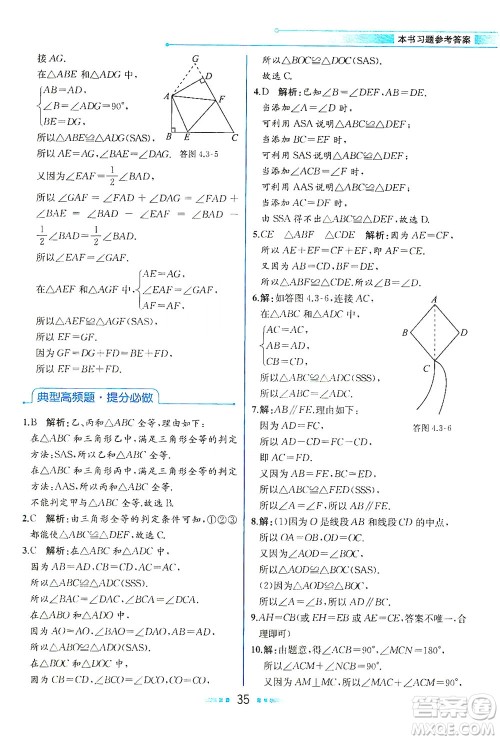 本书习题参考答案
接接 AG.
在△ABE 和△ADG 中,
AB=AD,
∠B=∠ADG=90°,
BE=DG,
所以△ABE≌△ADG(SAS).
所以 AE=AG,∠BAE=∠DAG.
答图 4.3-5
又因为∠EAF=1/2∠BAD,
所以∠GAF=∠DAG+∠DAF=
∠BAE+∠DAF=∠BAD-∠EAF=
1/2∠BAD,所以∠EAF=∠GAF.
在△AEF 和△AGF 中,
AE=AG,
∠EAF=∠GAF,
AF=AF,
所以△AEF≌△AGF(SAS).
所以 EF=GF.
因为 GF=DG+FD=BE+FD,
所以 EF=BE+FD.
典型高频题·提分必做
1.B 解析:乙、丙和△ABC 全等.理由如下:
在△ABC 和三角形乙中,满足三角形全等的判定
方法:SAS,所以三角形乙和△ABC 全等.
在△ABC 和三角形丙中,满足三角形全等的判定
方法:AAS,所以三角形丙和△ABC 全等.
不能判定甲与△ABC 全等.故选 B.
2.C 解析:由三角形全等的判定条件可知,①②③
都能使△ABC≌△DEF.故选 C.
3.C 解析:在△ABC 和△ADC 中,
所以△ABC≌△ADC(SSS).
所以∠BAC=∠DAC,∠BCA=∠DCA.
在△ABO 和△ADO 中,
所以△ABO≌△ADO(SAS).
在△BOC 和△DOC 中,
所以△BOC≌△DOC(SAS).
故选 C.
4.D 解析:已知∠B=∠DEF,AB=DE,
当添加∠A=∠D 时,
可利用 ASA 说明△ABC≌△DEF;
当添加 BC=EF 时,
可利用 SAS 说明△ABC≌△DEF;
当添加∠ACB=∠F 时,
可利用 AAS 说明△ABC≌△DEF;
当添加 AC=DF 时,
由 SSA 得不出△ABC≌△DEF.故选 D.
5.CE △ABF △CDE 解析:因为 AE=CF,
所以 AE+EF=CF+EF,即 AF=CE.
又因为 AB=CD,BF=DE,
所以△ABF≌△CDE.所以∠B=∠D.
6.解:如答图 4.3-6,连接 AC,
在△ABC 和△ADC 中,
AC=AC,
AB=AD,
BC=DC,
所以△ABC≌△ADC(SSS).
所以∠ABC=∠ADC.
答图 4.3-6
7.解:因为 AB∥FE,所以∠B=∠E.
因为 BD=CE,
所以 BD+CD=CE+CD,即 BC=DE.
又因为 AB=EF,
所以△ABC≌△FED(SAS).
所以∠A=∠F.
8.解:(1)因为 O 是线段 AB 和线段 CD 的中点,
所以 OA=OB,OD=OC.
又因为∠AOD=∠BOC,
所以△AOD≌△BOC(SAS).
(2)因为△AOD≌△BOC,
所以∠A=∠B.所以 AD∥BC.
9.AH=CB(或 EH=EB 或 AE=CE,答案不唯一,合
理即可)
10.解:由题意,得∠ACM=∠CBN=90°,
所以∠ACN+∠MCN=90°.
因为 AM⊥CN,所以∠ACN+∠CAM=90°.
35